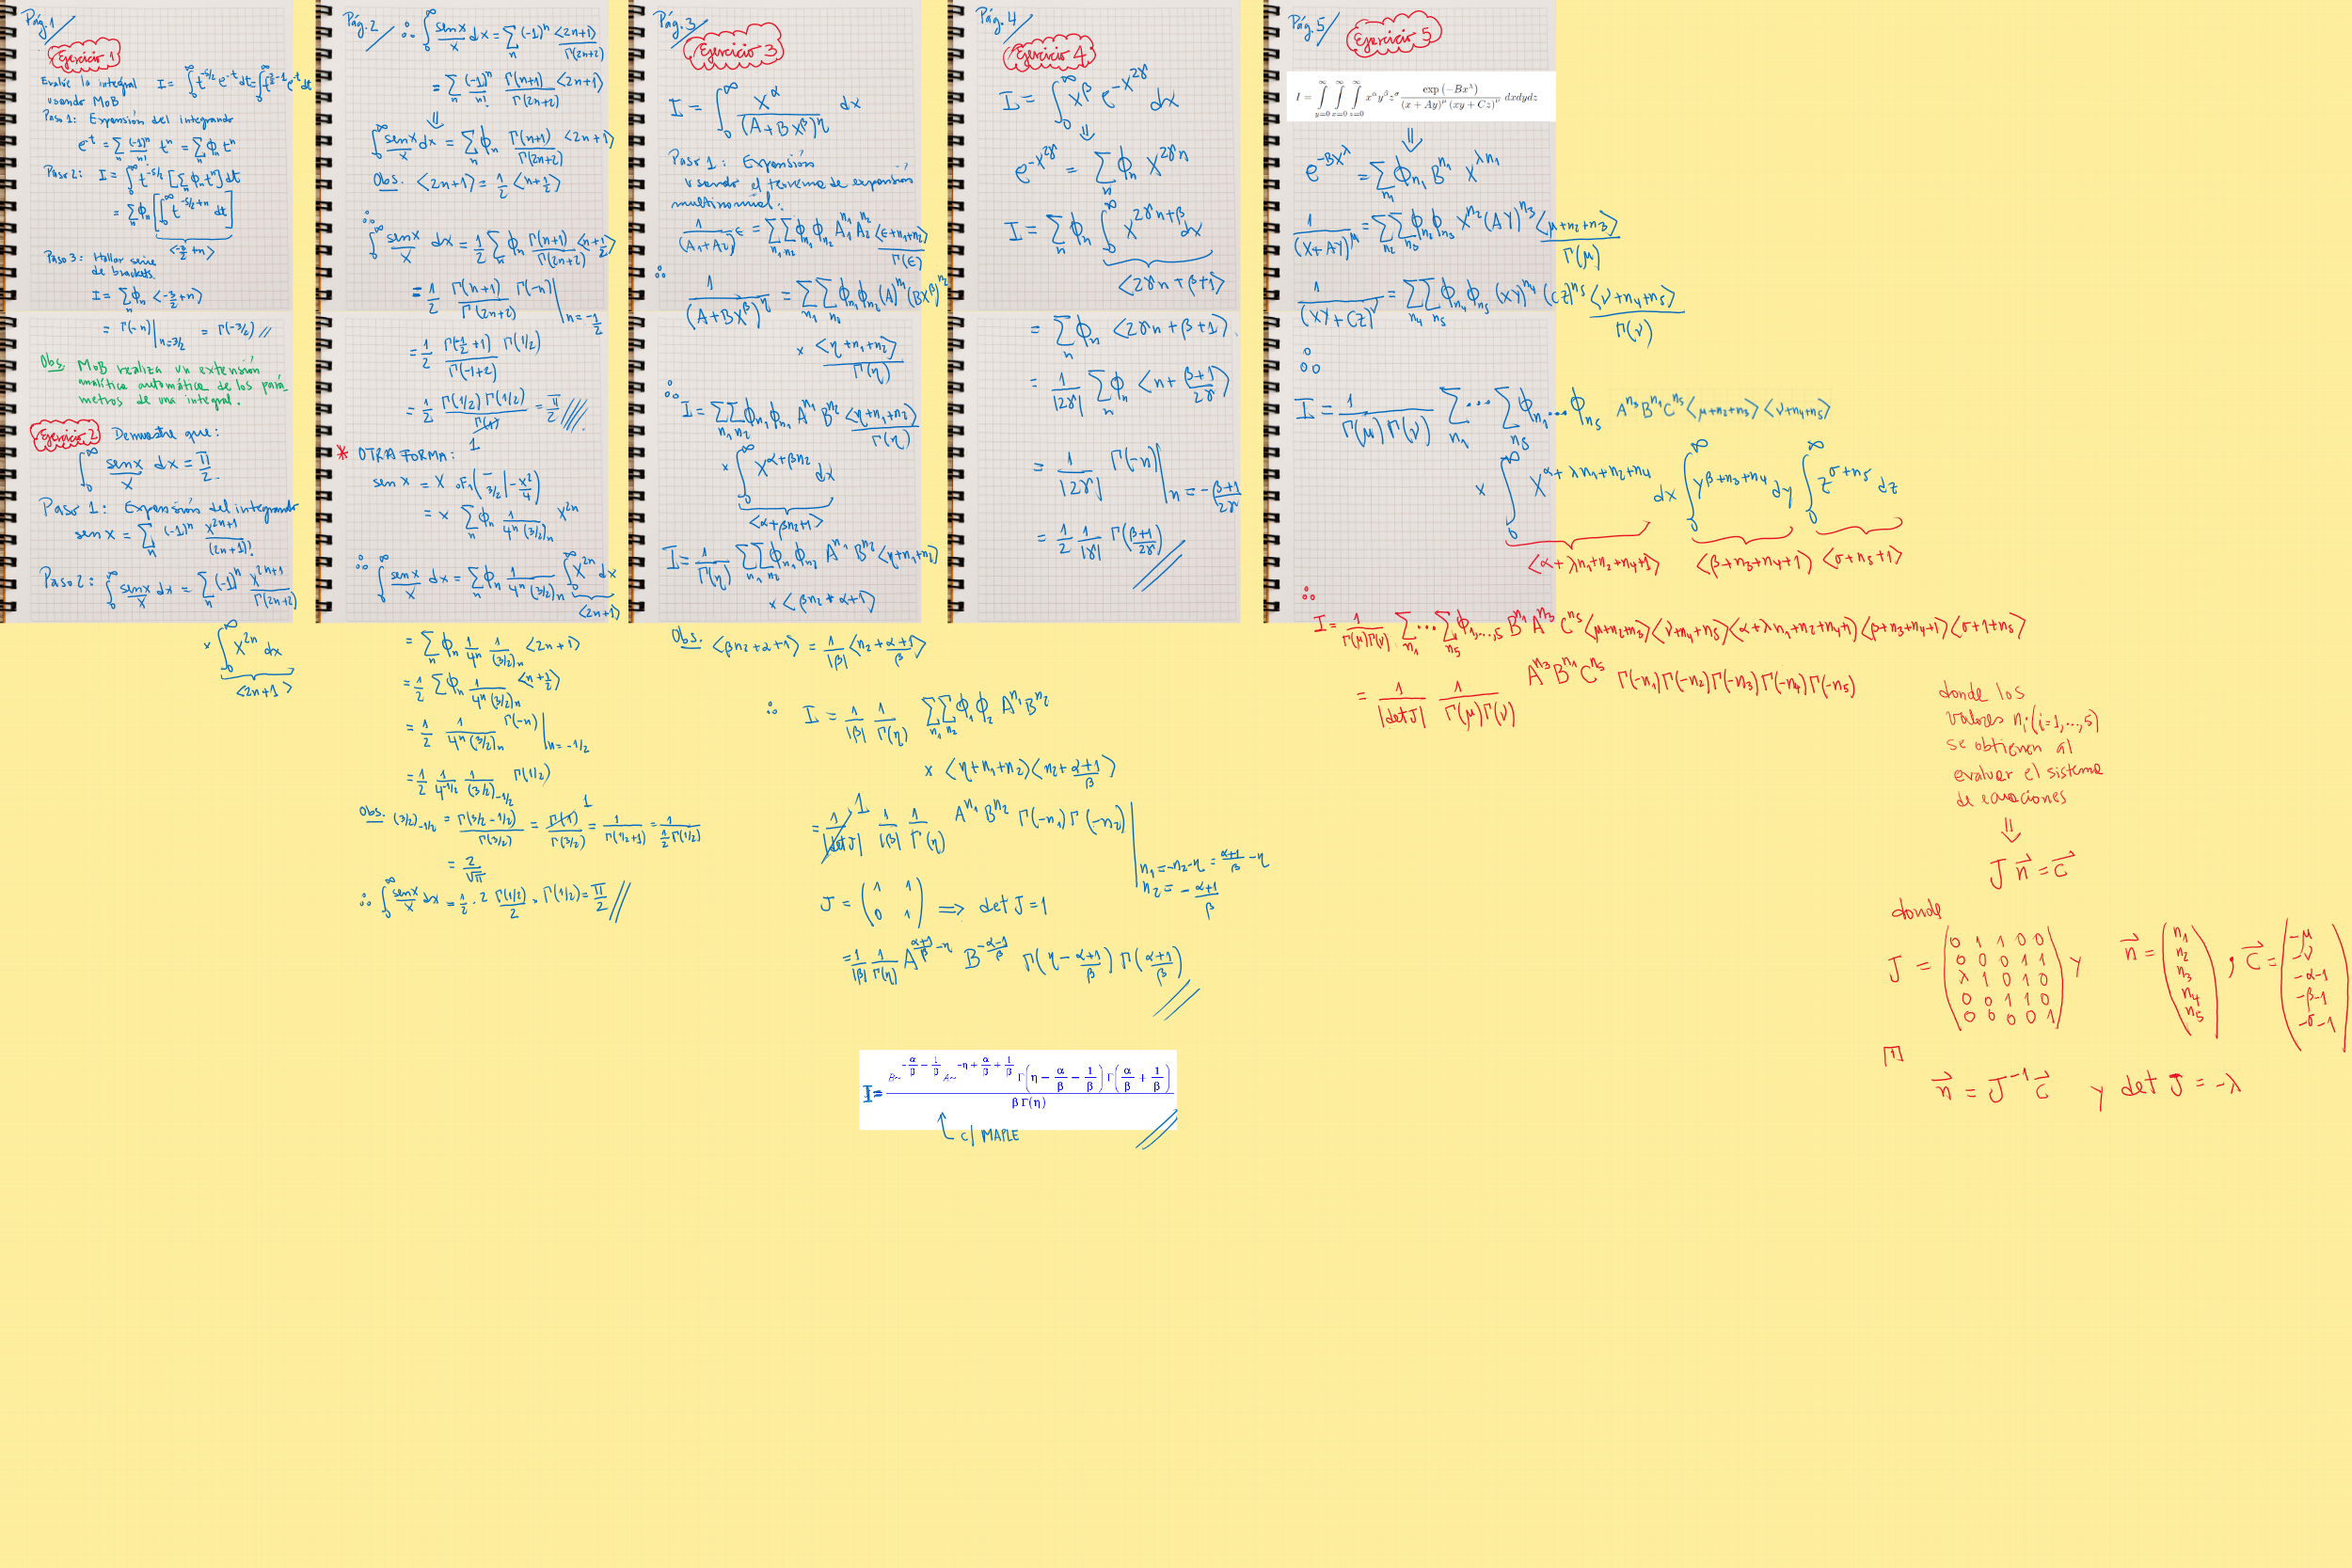 Pág. 1/
Ejercicio 1
Evalúe la integral I = ∫₀^∞ t^{-5/2} e^{-t} dt = ∫₀^∞ t^{-3/2-1} e^{-t} dt
usando MoB
Paso 1: Expansión del integrando
e^{-t} = Σ_n (-1)^n/n! t^n = Σ_n ϕ_n t^n
Paso 2: I = ∫₀^∞ t^{-5/2} [Σ_n ϕ_n t^n] dt
= Σ_n ϕ_n [∫₀^∞ t^{-5/2+n} dt]
<-3/2+n>
Paso 3: Hallar serie
de brackets
I = Σ_n ϕ_n <-3/2+n>
= Γ(-n)|_{n=3/2} = Γ(-3/2) //
Obs. MoB realiza un extensión
analítica automática de los pará-
metros de una integral.
Ejercicio 2 Demuestre que:
∫₀^∞ senx/x dx = π/2.
Paso 1: Expansión del integrando
sen x = Σ_n (-1)^n x^{2n+1}/(2n+1)!
Paso 2: ∫₀^∞ senx/x dx = Σ_n (-1)^n x^{2n+1}/Γ(2n+2)
× ∫₀^∞ x^{2n} dx
<2n+1>
Pág. 2/
∴ ∫₀^∞ senx/x dx = Σ_n (-1)^n <2n+1>/Γ(2n+2)
= Σ_n (-1)^n/n! Γ(n+1)/Γ(2n+2) <2n+1>
⇓
∫₀^∞ senx/x dx = Σ_n ϕ_n Γ(n+1)/Γ(2n+2) <2n+1>
Obs. <2n+1> = 1/2 <n+1/2>
∴ ∫₀^∞ senx/x dx = 1/2 Σ_n ϕ_n Γ(n+1)/Γ(2n+2) <n+1/2>
= 1/2 Γ(n+1)/Γ(2n+2) Γ(-n)|_{n=-1/2}
= 1/2 Γ(-1/2+1)/Γ(-1+2) Γ(1/2)
= 1/2 Γ(1/2)Γ(1/2)/Γ(1) = π/2 ////
1
* OTRA FORMA:
sen x = x ₀F₁(‾ 3/2 | -x²/4)
= x Σ_n ϕ_n 1/(4^n (3/2)_n) x^{2n}
∴ ∫₀^∞ senx/x dx = Σ_n ϕ_n 1/(4^n (3/2)_n) ∫₀^∞ x^{2n} dx
<2n+1>
= Σ_n ϕ_n 1/4^n 1/(3/2)_n <2n+1>
= 1/2 Σ_n ϕ_n 1/(4^n (3/2)_n) <n+1/2>
= 1/2 1/(4^n (3/2)_n) Γ(-n)|_{n=-1/2}
= 1/2 1/4^{-1/2} 1/(3/2)_{-1/2} Γ(1/2)
Obs. (3/2)_{-1/2} = Γ(3/2-1/2)/Γ(3/2) = Γ(1)/Γ(3/2) = 1/Γ(1/2+1) = 1/(1/2 Γ(1/2))
1
= 2/√π
∴ ∫₀^∞ senx/x dx = 1/2 · 2 Γ(1/2)/2 · Γ(1/2) = π/2 //
Pág. 3/
Ejercicio 3
I = ∫₀^∞ x^α/(A+Bx^β)^η dx
Paso 1: Expansión
usando el teorema de expansión
multinomial:
1/(A₁+A₂)^ε = Σ_{n₁} Σ_{n₂} ϕ_{n₁} ϕ_{n₂} A₁^{n₁} A₂^{n₂} <ε+n₁+n₂>/Γ(ε)
∴ 1/(A+Bx^β)^η = Σ_{n₁} Σ_{n₂} ϕ_{n₁} ϕ_{n₂} (A)^{n₁} (Bx^β)^{n₂}
× <η+n₁+n₂>/Γ(η)
∴ I = Σ_{n₁} Σ_{n₂} ϕ_{n₁} ϕ_{n₁} A^{n₁} B^{n₂} <η+n₁+n₂>/Γ(η)
× ∫₀^∞ x^{α+βn₂} dx
<α+βn₂+1>
I = 1/Γ(η) Σ_{n₁} Σ_{n₂} ϕ_{n₁} ϕ_{n₂} A^{n₁} B^{n₂} <η+n₁+n₂>
× <βn₂+α+1>
Obs. <βn₂+α+1> = 1/|β| <n₂+(α+1)/β>
∴ I = 1/|β| 1/Γ(η) Σ_{n₁} Σ_{n₂} ϕ₁ ϕ₂ A^{n₁} B^{n₂}
× <η+n₁+n₂> <n₂+(α+1)/β>
= 1/|det J| 1/|β| 1/Γ(η) A^{n₁} B^{n₂} Γ(-n₁) Γ(-n₂)|
1
n₁ = -n₂-η = (α+1)/β - η
n₂ = -(α+1)/β
J = (1 1; 0 1) ⇒ det J = 1
= 1/|β| 1/Γ(η) A^{(α+1)/β-η} B^{(-α-1)/β} Γ(η-(α+1)/β) Γ((α+1)/β) //
I = B~^{-α/β-1/β} A~^{-η+α/β+1/β} Γ(η-α/β-1/β) Γ(α/β+1/β) / (β Γ(η)) //
↑ c/ MAPLE
Pág. 4/
Ejercicio 4
I = ∫₀^∞ x^β e^{-x^{2γ}} dx
⇓
e^{-x^{2γ}} = Σ_n ϕ_n x^{2γn}
I = Σ_n ϕ_n ∫₀^∞ x^{2γn+β} dx
<2γn+β+1>
= Σ_n ϕ_n <2γn+β+1>.
= 1/|2γ| Σ_n ϕ_n <n+(β+1)/2γ>
= 1/|2γ| Γ(-n)|_{n=-(β+1)/2γ}
= 1/2 1/|γ| Γ((β+1)/2γ) //
Pág. 5/
Ejercicio 5
I = ∫_{y=0}^∞ ∫_{x=0}^∞ ∫_{z=0}^∞ x^α y^β z^σ exp(-Bx^λ) / ((x+Ay)^μ (xy+Cz)^ν) dxdydz
⇓
e^{-Bx^λ} = Σ_{n₁} ϕ_{n₁} B^{n₁} x^{λn₁}
1/(x+Ay)^μ = Σ_{n₂} Σ_{n₃} ϕ_{n₂} ϕ_{n₃} x^{n₂} (Ay)^{n₃} <μ+n₂+n₃>/Γ(μ)
1/(xy+Cz)^ν = Σ_{n₄} Σ_{n₅} ϕ_{n₄} ϕ_{n₅} (xy)^{n₄} (Cz)^{n₅} <ν+n₄+n₅>/Γ(ν)
∴
I = 1/(Γ(μ)Γ(ν)) Σ_{n₁} ... Σ_{n₅} ϕ_{n₁}...ϕ_{n₅} A^{n₃} B^{n₁} C^{n₅} <μ+n₂+n₃> <ν+n₄+n₅>
× ∫₀^∞ x^{α+λn₁+n₂+n₄} dx ∫₀^∞ y^{β+n₃+n₄} dy ∫₀^∞ z^{σ+n₅} dz
<α+λn₁+n₂+n₄+1> <β+n₃+n₄+1> <σ+n₅+1>
∴
I = 1/(Γ(μ)Γ(ν)) Σ_{n₁} ... Σ_{n₅} ϕ_{1,...,5} B^{n₁} A^{n₃} C^{n₅} <μ+n₂+n₃> <ν+n₄+n₅> <α+λn₁+n₂+n₄+1> <β+n₃+n₄+1> <σ+1+n₅>
= 1/|det J| 1/(Γ(μ)Γ(ν)) A^{n₃} B^{n₁} C^{n₅} Γ(-n₁)Γ(-n₂)Γ(-n₃)Γ(-n₄)Γ(-n₅)
donde los
valores n_i (i=1,...,5)
se obtienen al
evaluar el sistema
de ecuaciones
⇓
J n⃗ = c⃗
donde
J = (0 1 1 0 0; 0 0 0 1 1; λ 1 0 1 0; 0 0 1 1 0; 0 0 0 0 1) y n⃗ = (n₁; n₂; n₃; n₄; n₅), c⃗ = (-μ; -ν; -α-1; -β-1; -σ-1)
n⃗ = J⁻¹ c⃗ y det J = -λ